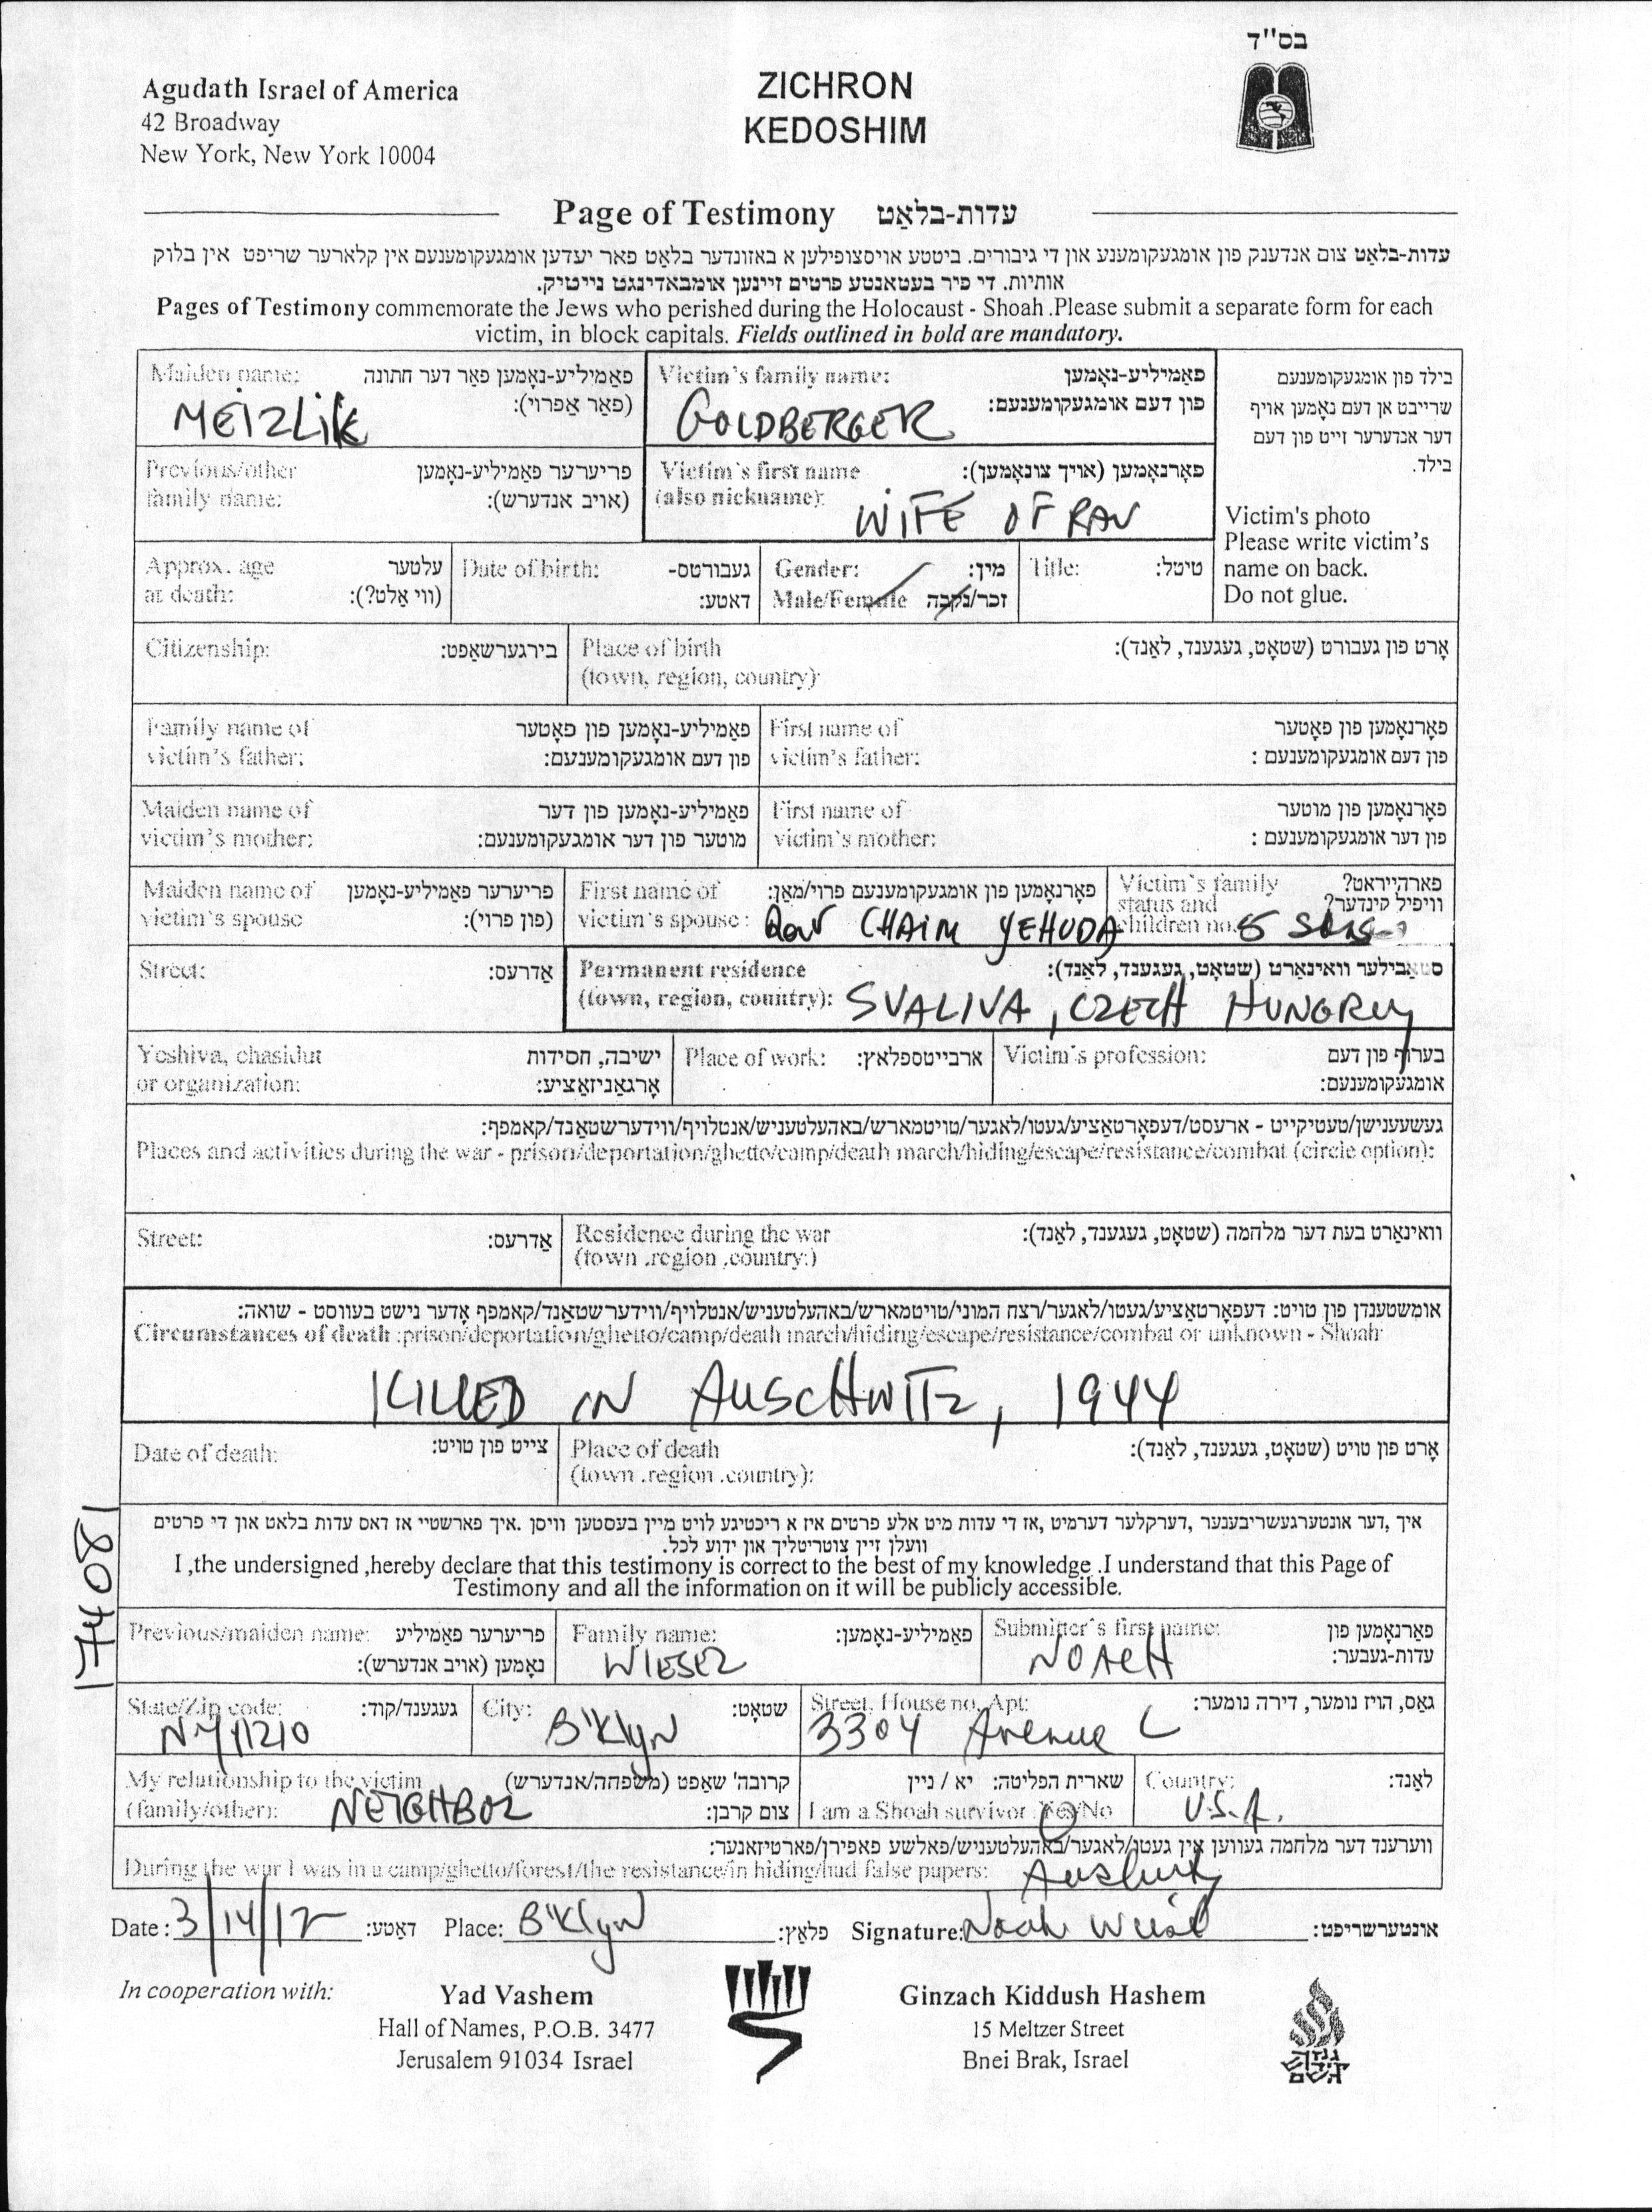 בס"ד
Agudath Israel of America
42 Broadway
New York, New York 10004
ZICHRON
KEDOSHIM
Page of Testimony עדות-בלאַט
עדות-בלאַט צום אנדענק פון אומגעקומענע און די גיבורים. ביטטע אויסצופילען א באזונדער בלאַט פאר יעדען אומגעקומענעם אין קלארער שריפט אין בלוק
אותיות. די פיר בעטאנטע פרטים זיינען אומבאדינגט נייטיק.
Pages of Testimony commemorate the Jews who perished during the Holocaust - Shoah .Please submit a separate form for each
victim, in block capitals. Fields outlined in bold are mandatory.
Maiden name: פאַמיליע-נאָמען פאַר דער חתונה
(פאַר אַפרוי):
MEIZLIK
Victim's family name: פאַמיליע-נאָמען
פון דעם אומגעקומענעם:
GOLDBERGER
בילד פון אומגעקומענעם
שרייבט אן דעם נאָמען אויף
דער אנדערער זייט פון דעם
בילד.
Victim's photo
Please write victim's
name on back.
Do not glue.
Previous/other פריערער פאַמיליע-נאָמען
family name: (אויב אנדערש):
Victim's first name פאָרנאָמען (אויך צונאָמען):
(also nickname):
WIFE OF RAV
Approx. age עלטער
at death: (ווי אַלט?):
Date of birth: געבורטס-
דאַטע:
Gender: מין:
Male/Female זכר/נקבה
Title: טיטל:
Citizenship: בירגערשאַפט:
Place of birth אָרט פון געבורט (שטאָט, געגענד, לאַנד):
(town, region, country):
Family name of פאַמיליע-נאָמען פון פאָטער
victim's father: פון דעם אומגעקומענעם:
First name of פאָרנאָמען פון פאָטער
victim's father: פון דעם אומגעקומענעם :
Maiden name of פאַמיליע-נאָמען פון דער
victim's mother: מוטער פון דער אומגעקומענעם:
First name of פאָרנאָמען פון מוטער
victim's mother: פון דער אומגעקומענעם :
Maiden name of פריערער פאַמיליע-נאָמען
victim's spouse (פון פרוי):
First name of פאָרנאָמען פון אומגעקומענעם פרוי/מאַן:
victim's spouse : Rav CHAIM YEHUDA
Victim's family פארהייראט?
status and וויפיל קינדער?
children no. 5 Sons
Street: אַדרעס:
Permanent residence סטאַבילער וואינאַרט (שטאָט, געגענד, לאַנד):
(town, region, country): SVALIVA, CZECH HUNGRY
Yeshiva, chasidut ישיבה, חסידות
or organization: אָרגאַניזאַציע:
Place of work: ארבייטספלאץ:
Victim's profession: בערוף פון דעם
אומגעקומענעם:
געשעענישן/טעטיקייט - ארעסט/דעפאָרטאַציע/געטו/לאגער/טויטמארש/באהעלטעניש/אנטלויף/ווידערשטאַנד/קאמפף:
Places and activities during the war - prison/deportation/ghetto/camp/death march/hiding/escape/resistance/combat (circle option):
Street: אַדרעס:
Residence during the war וואינאַרט בעת דער מלחמה (שטאָט, געגענד, לאַנד):
(town .region .country:)
אומשטענדן פון טויט: דעפאָרטאַציע/געטו/לאגער/רצח המוני/טויטמארש/באהעלטעניש/אנטלויף/ווידערשטאַנד/קאמפף אָדער נישט בעווסט - שואה:
Circumstances of death :prison/deportation/ghetto/camp/death march/hiding/escape/resistance/combat or unknown - Shoah
KILLED IN AUSCHWITZ, 1944
Date of death: צייט פון טויט:
Place of death אָרט פון טויט (שטאָט, געגענד, לאַנד):
(town .region .country):
174081
איך ,דער אונטערגעשריבענער ,דערקלער דערמיט ,אז די עדות מיט אלע פרטים איז א ריכטיגע לויט מיין בעסטען וויסן .איך פארשטיי אז דאס עדות בלאט און די פרטים
וועלן זיין צוטריטליך און ידוע לכל.
I ,the undersigned ,hereby declare that this testimony is correct to the best of my knowledge .I understand that this Page of
Testimony and all the information on it will be publicly accessible.
Previous/maiden name: פריערער פאַמיליע
נאָמען (אויב אנדערש):
Family name: פאַמיליע-נאָמען:
WIESEL
Submitter's first name: פאַרנאָמען פון
עדות-געבער:
NOACH
State/Zip code: געגענד/קוד:
NY 11210
City: שטאָט:
B'klyn
Street, House no, Apt: גאַס, הויז נומער, דירה נומער:
3304 Avenue L
My relationship to the victim קרובה' שאַפט (משפחה/אנדערש)
(family/other): צום קרבן:
NEIGHBOR
שארית הפליטה: יא / ניין
I am a Shoah survivor :Yes/No
Country: לאַנד:
U.S.A.
ווערענד דער מלחמה געווען אין געטו/לאגער/באַהעלטעניש/פאלשע פאפירן/פארטיזאנער:
During the war I was in a camp/ghetto/forest/the resistance/in hiding/had false papers:
Date : 3/14/12 דאַטע: Place: B'klyn פלאַץ: Signature: Noah Wiesel אונטערשריפט:
In cooperation with:
Yad Vashem
Hall of Names, P.O.B. 3477
Jerusalem 91034 Israel
Ginzach Kiddush Hashem
15 Meltzer Street
Bnei Brak, Israel
גנזך
קידוש
השם